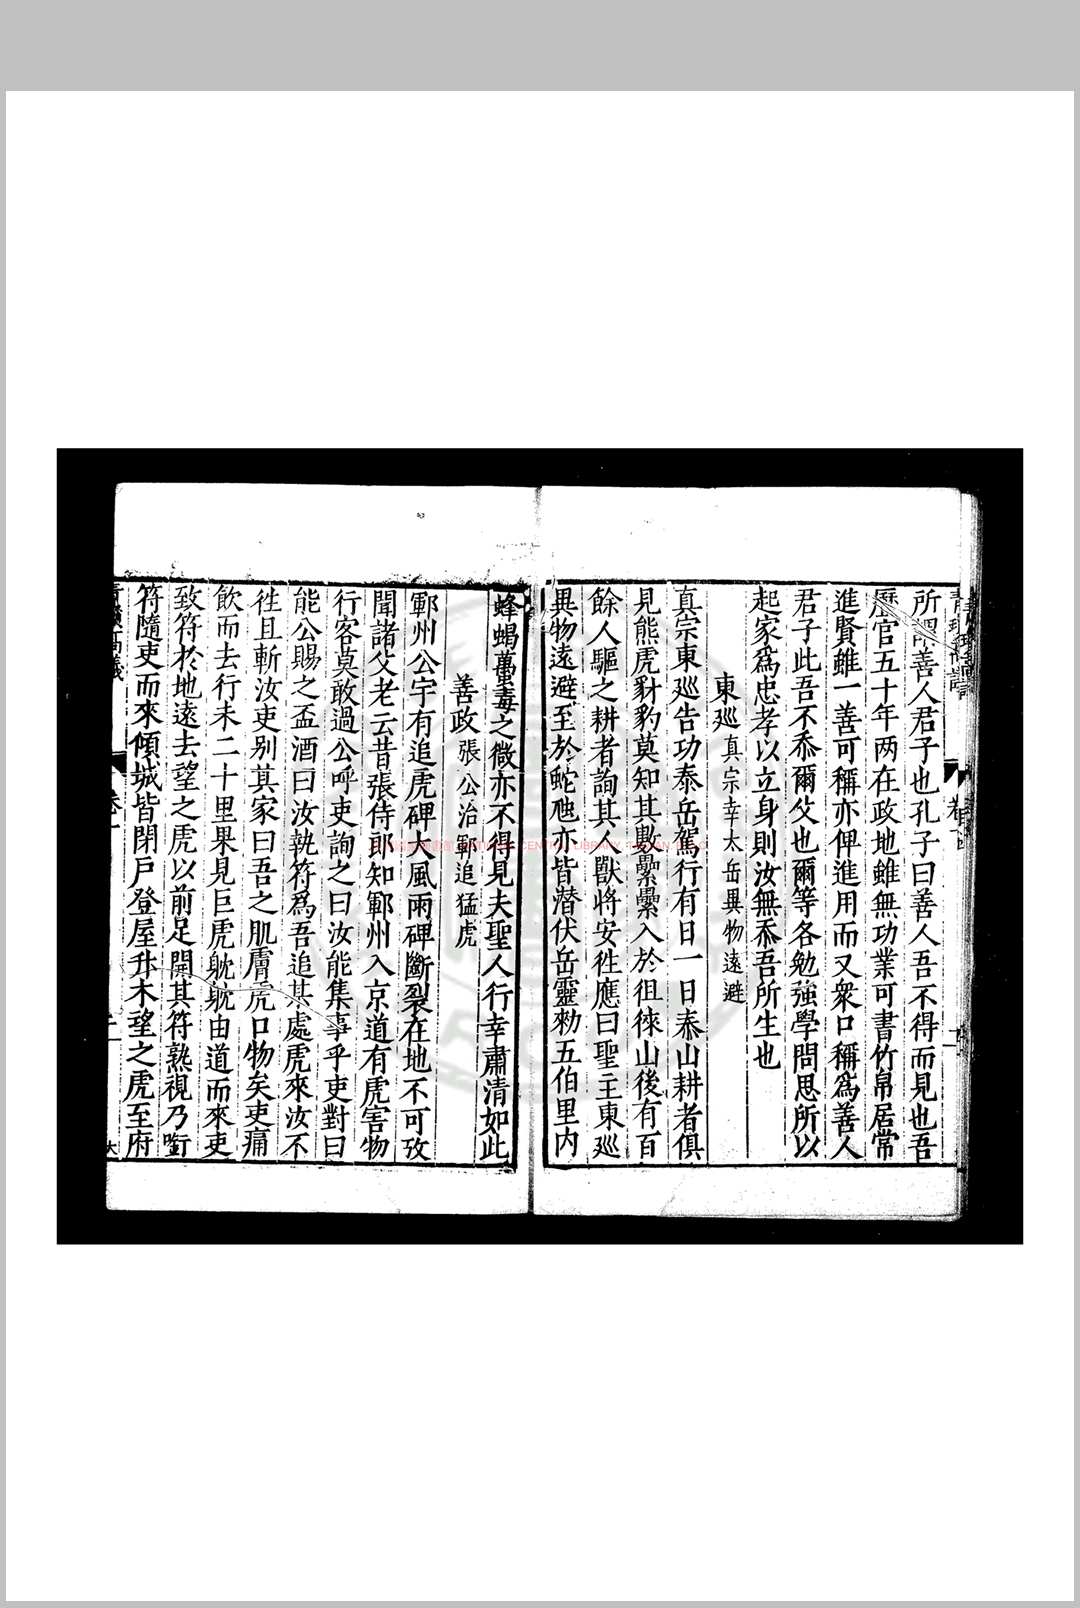 所謂善人君子也孔子曰善人吾不得而見也吾
歷官五十年两在政地雖無功業可書竹帛居常
進賢雖一善可稱亦俾進用而又衆口稱爲善人
君子此吾不忝爾父也爾等各勉強學問思所以
起家爲忠孝以立身則汝無忝吾所生也
東廵真宗幸太岳異物遠避
真宗東廵告功泰岳駕行有日一日泰山耕者俱
見熊虎豺豹莫知其數纍纍入於徂徠山後有百
餘人驅之耕者詢其人獸將安徃應曰聖主東廵
異物遠避至於蛇虺亦皆潜伏岳靈勑五伯里内
蜂蝎蠆毒之微亦不得見夫聖人行幸肅清如此
善政張公治鄆追猛虎
鄆州公宇有追虎碑大風雨碑斷裂在地不可攷
聞諸父老云昔張侍郎知鄆州入京道有虎害物
行客莫敢過公呼吏詢之曰汝能集事乎吏對曰
能公賜之盃酒曰汝執符爲吾追某處虎來汝不
徃且斬汝吏别其家曰吾之肌膚虎口物矣吏痛
飲而去行未二十里果見巨虎躭躭由道而來吏
致符於地遠去望之虎以前足開其符熟視乃㘅
符隨吏而來傾城皆閉戶登屋升木望之虎至府